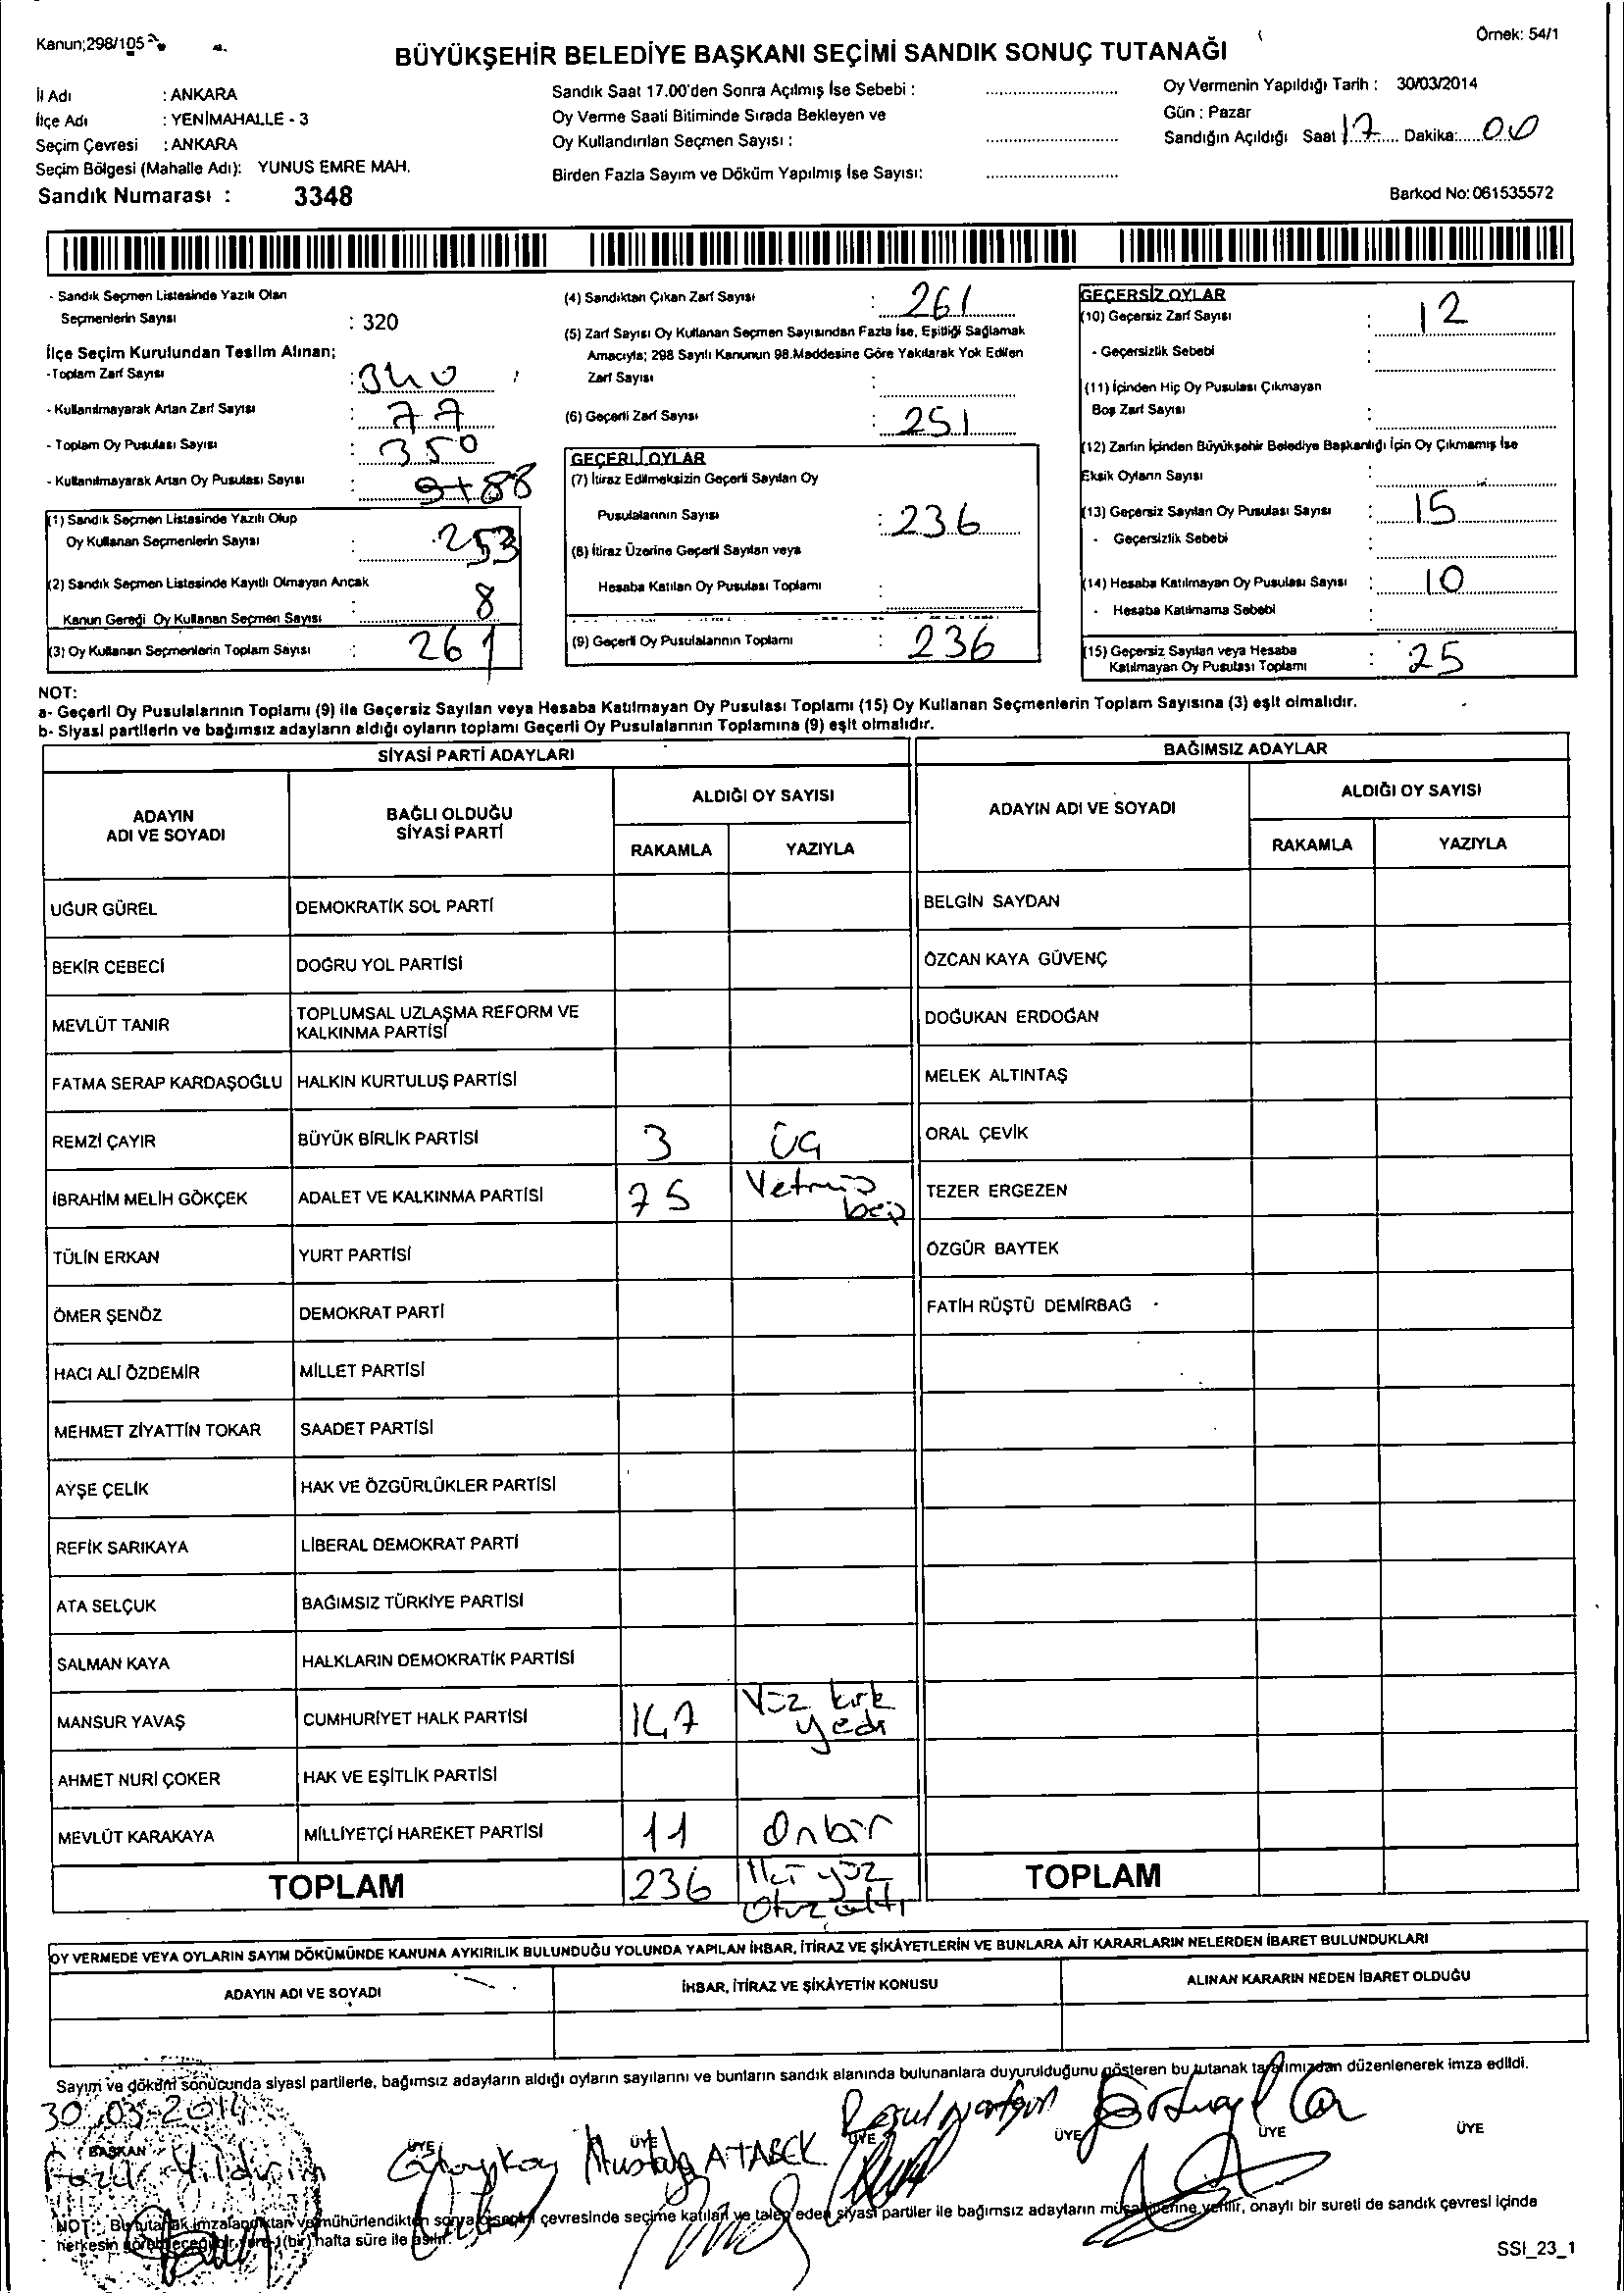 Kanun;298/105
Örnek: 54/1
BÜYÜKŞEHİR BELEDİYE BAŞKANI SEÇİMİ SANDIK SONUÇ TUTANAĞI
İl Adı : ANKARA
İlçe Adı : YENİMAHALLE - 3
Seçim Çevresi : ANKARA
Seçim Bölgesi (Mahalle Adı): YUNUS EMRE MAH.
Sandık Numarası : 3348
Sandık Saat 17.00'den Sonra Açılmış İse Sebebi :
Oy Verme Saati Bitiminde Sırada Bekleyen ve
Oy Kullandırılan Seçmen Sayısı :
Birden Fazla Sayım ve Döküm Yapılmış İse Sayısı:
Oy Vermenin Yapıldığı Tarih : 30/03/2014
Gün : Pazar
Sandığın Açıldığı Saat 17 Dakika: 00
Barkod No: 061535572
- Sandık Seçmen Listesinde Yazılı Olan
Seçmenlerin Sayısı : 320
İlçe Seçim Kurulundan Teslim Alınan;
-Toplam Zarf Sayısı : 340
- Kullanılmayarak Artan Zarf Sayısı : 77
- Toplam Oy Pusulası Sayısı : 350
- Kullanılmayarak Artan Oy Pusulası Sayısı : 9+88
(1) Sandık Seçmen Listesinde Yazılı Olup
Oy Kullanan Seçmenlerin Sayısı : 253
(2) Sandık Seçmen Listesinde Kayıtlı Olmayan Ancak
Kanun Gereği Oy Kullanan Seçmen Sayısı : 8
(3) Oy Kullanan Seçmenlerin Toplam Sayısı : 261
(4) Sandıktan Çıkan Zarf Sayısı : 261
(5) Zarf Sayısı Oy Kullanan Seçmen Sayısından Fazla İse, Eşitliği Sağlamak
Amacıyla; 298 Sayılı Kanunun 98.Maddesine Göre Yakılarak Yok Edilen
Zarf Sayısı :
(6) Geçerli Zarf Sayısı : 251
GEÇERLİ OYLAR
(7) İtiraz Edilmeksizin Geçerli Sayılan Oy
Pusulalarının Sayısı : 236
(8) İtiraz Üzerine Geçerli Sayılan veya
Hesaba Katılan Oy Pusulası Toplamı :
(9) Geçerli Oy Pusulalarının Toplamı : 236
GEÇERSİZ OYLAR
(10) Geçersiz Zarf Sayısı : 12
- Geçersizlik Sebebi :
(11) İçinden Hiç Oy Pusulası Çıkmayan
Boş Zarf Sayısı :
(12) Zarfın İçinden Büyükşehir Belediye Başkanlığı İçin Oy Çıkmamış İse
Eksik Oyların Sayısı :
(13) Geçersiz Sayılan Oy Pusulası Sayısı : 15
- Geçersizlik Sebebi :
(14) Hesaba Katılmayan Oy Pusulası Sayısı : 10
- Hesaba Katılmama Sebebi :
(15) Geçersiz Sayılan veya Hesaba
Katılmayan Oy Pusulası Toplamı : 25
NOT:
a- Geçerli Oy Pusulalarının Toplamı (9) ile Geçersiz Sayılan veya Hesaba Katılmayan Oy Pusulası Toplamı (15) Oy Kullanan Seçmenlerin Toplam Sayısına (3) eşit olmalıdır.
b- Siyasi partilerin ve bağımsız adayların aldığı oyların toplamı Geçerli Oy Pusulalarının Toplamına (9) eşit olmalıdır.
SİYASİ PARTİ ADAYLARI
BAĞIMSIZ ADAYLAR
ADAYIN ADI VE SOYADI
BAĞLI OLDUĞU SİYASİ PARTİ
ALDIĞI OY SAYISI
RAKAMLA YAZIYLA
ADAYIN ADI VE SOYADI
ALDIĞI OY SAYISI
RAKAMLA YAZIYLA
UĞUR GÜREL DEMOKRATİK SOL PARTİ BELGİN SAYDAN
BEKİR CEBECİ DOĞRU YOL PARTİSİ ÖZCAN KAYA GÜVENÇ
MEVLÜT TANIR TOPLUMSAL UZLAŞMA REFORM VE KALKINMA PARTİSİ DOĞUKAN ERDOĞAN
FATMA SERAP KARDAŞOĞLU HALKIN KURTULUŞ PARTİSİ MELEK ALTINTAŞ
REMZİ ÇAYIR BÜYÜK BİRLİK PARTİSİ 3 ÜÇ ORAL ÇEVİK
İBRAHİM MELİH GÖKÇEK ADALET VE KALKINMA PARTİSİ 75 Yetmiş beş TEZER ERGEZEN
TÜLİN ERKAN YURT PARTİSİ ÖZGÜR BAYTEK
ÖMER ŞENÖZ DEMOKRAT PARTİ FATİH RÜŞTÜ DEMİRBAĞ
HACI ALİ ÖZDEMİR MİLLET PARTİSİ
MEHMET ZİYATTİN TOKAR SAADET PARTİSİ
AYŞE ÇELİK HAK VE ÖZGÜRLÜKLER PARTİSİ
REFİK SARIKAYA LİBERAL DEMOKRAT PARTİ
ATA SELÇUK BAĞIMSIZ TÜRKİYE PARTİSİ
SALMAN KAYA HALKLARIN DEMOKRATİK PARTİSİ
MANSUR YAVAŞ CUMHURİYET HALK PARTİSİ 147 Yüz kırk yedi
AHMET NURİ ÇOKER HAK VE EŞİTLİK PARTİSİ
MEVLÜT KARAKAYA MİLLİYETÇİ HAREKET PARTİSİ 11 Onbir
TOPLAM 236 İki yüz otuz altı TOPLAM
OY VERMEDE VEYA OYLARIN SAYIM DÖKÜMÜNDE KANUNA AYKIRILIK BULUNDUĞU YOLUNDA YAPILAN İHBAR, İTİRAZ VE ŞİKÂYETLERİN VE BUNLARA AİT KARARLARIN NELERDEN İBARET BULUNDUKLARI
ADAYIN ADI VE SOYADI İHBAR, İTİRAZ VE ŞİKÂYETİN KONUSU ALINAN KARARIN NEDEN İBARET OLDUĞU
Sayım ve döküm sonucunda siyasi partilerle, bağımsız adayların aldığı oyların sayılarını ve bunların sandık alanında bulunanlara duyurulduğunu gösteren bu tutanak tarafımızdan düzenlenerek imza edildi.
30.03.2014
BAŞKAN ÜYE ÜYE ÜYE ÜYE ÜYE ÜYE
Yıldırım Mustafa ATABEK
NOT: Bu tutanak imzalandıktan ve mühürlendikten sonra seçim çevresinde seçime katılan ve talep eden siyasi partiler ile bağımsız adayların müşahitlerine verilir, onaylı bir sureti de sandık çevresi içinde
herkesin görebileceği bir yere 1(bir) hafta süre ile asılır.
SSI_23_1